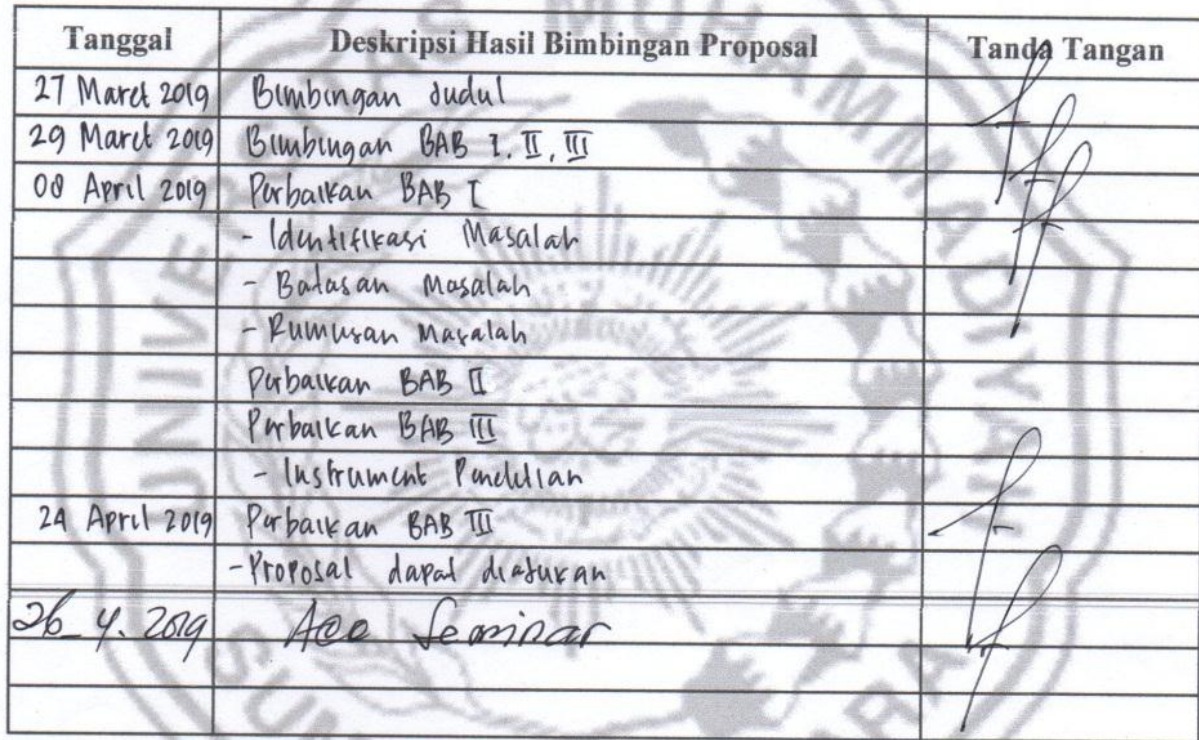 Tanggal Deskripsi Hasil Bimbingan Proposal Tanda Tangan
27 Maret 2019 Bimbingan Judul
29 Maret 2019 Bimbingan BAB I, II, III
08 April 2019 Perbaikan BAB I
- Identifikasi Masalah
- Batasan Masalah
- Rumusan Masalah
Perbaikan BAB II
Perbaikan BAB III
- Instrument Penelitian
24 April 2019 Perbaikan BAB III
- Proposal dapat diajukan
26-4-2019 Acc Seminar